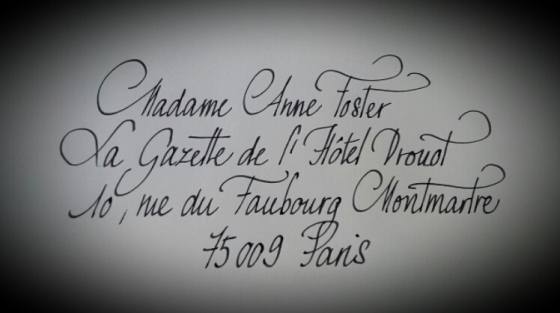 Madame Anne Foster
La Gazette de l'Hôtel Drouot
10, rue du Faubourg Montmartre
75009 Paris